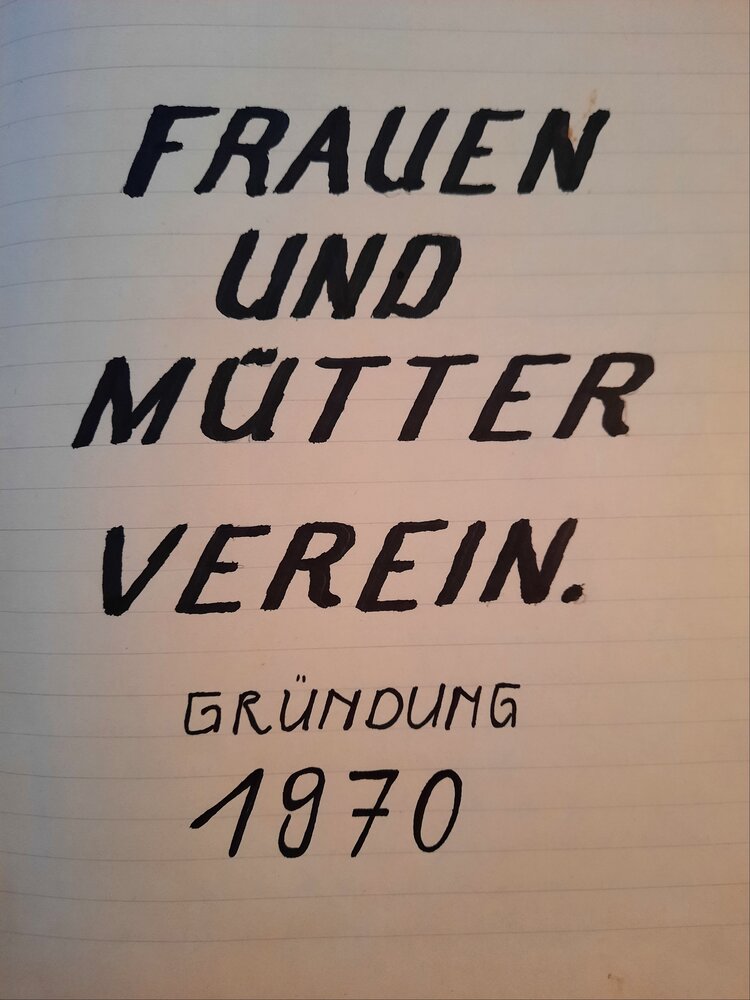 FRAUEN
UND
MÜTTER
VEREIN.
GRÜNDUNG
1970